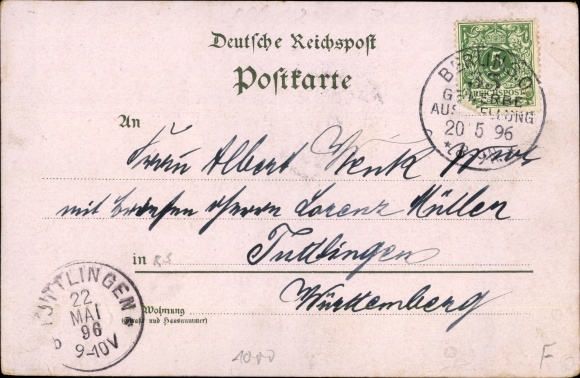 Deutsche Reichspost
Postkarte
5
REICHSPOST
BERLIN S.O.
GEWERBE
AUSSTELLUNG
20 5 96
An
Frau Albert Wenk
mit Herrn Lorenz Müller
in Tuttlingen
Württemberg
Wohnung
(Straße und Hausnummer)
TUTTLINGEN
22
MAI
96
9-10V
1000
F